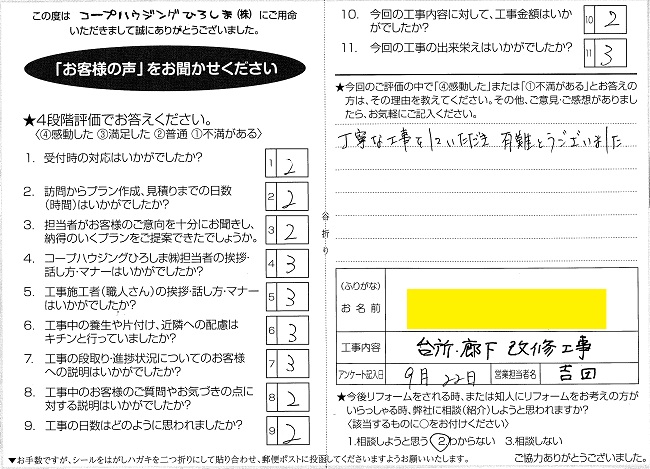 この度は コープハウジングひろしま(株) にご用命
いただきまして誠にありがとうございました。
「お客様の声」をお聞かせください
★4段階評価でお答えください。
〈④感動した ③満足した ②普通 ①不満がある〉
1. 受付時の対応はいかがでしたか?
1 2
2. 訪問からプラン作成、見積りまでの日数
(時間)はいかがでしたか?
2 2
3. 担当者がお客様のご意向を十分にお聞きし、
納得のいくプランをご提案できたでしょうか。
3 2
4. コープハウジングひろしま㈱担当者の挨拶・
話し方・マナーはいかがでしたか?
4 3
5. 工事施工者(職人さん)の挨拶・話し方・マナー
はいかがでしたか?
5 3
6. 工事中の養生や片付け、近隣への配慮は
キチンと行っていましたか?
6 3
7. 工事の段取り・進捗状況についてのお客様
への説明はいかがでしたか?
7 3
8. 工事中のお客様のご質問やお気づきの点に
対する説明はいかがでしたか?
8 2
9. 工事の日数はどのように思われましたか?
9 2
▼お手数ですが、シールをはがしハガキを二つ折りにして貼り合わせ、郵便ポストに投函してくださいますようお願いいたします。
谷折り
10. 今回の工事内容に対して、工事金額はいか
がでしたか?
10 2
11. 今回の工事の出来栄えはいかがでしたか?
11 3
★今回のご評価の中で「④感動した」または「①不満がある」とお答えの
方は、その理由を教えてください。その他、ご意見・ご感想がありまし
たら、お気軽にご記入ください。
丁寧な工事をしていただき 有難とうございました
(ふりがな)
お名前
工事内容 台所・廊下 改修工事
アンケート記入日 9月22日 営業担当者名 吉田
★今後リフォームをされる時、または知人にリフォームをお考えの方が
いらっしゃる時、弊社に相談(紹介)しようと思われますか?
〈該当するものに○をお付けください〉
1.相談しようと思う ②わからない 3.相談しない
ご協力ありがとうございました。